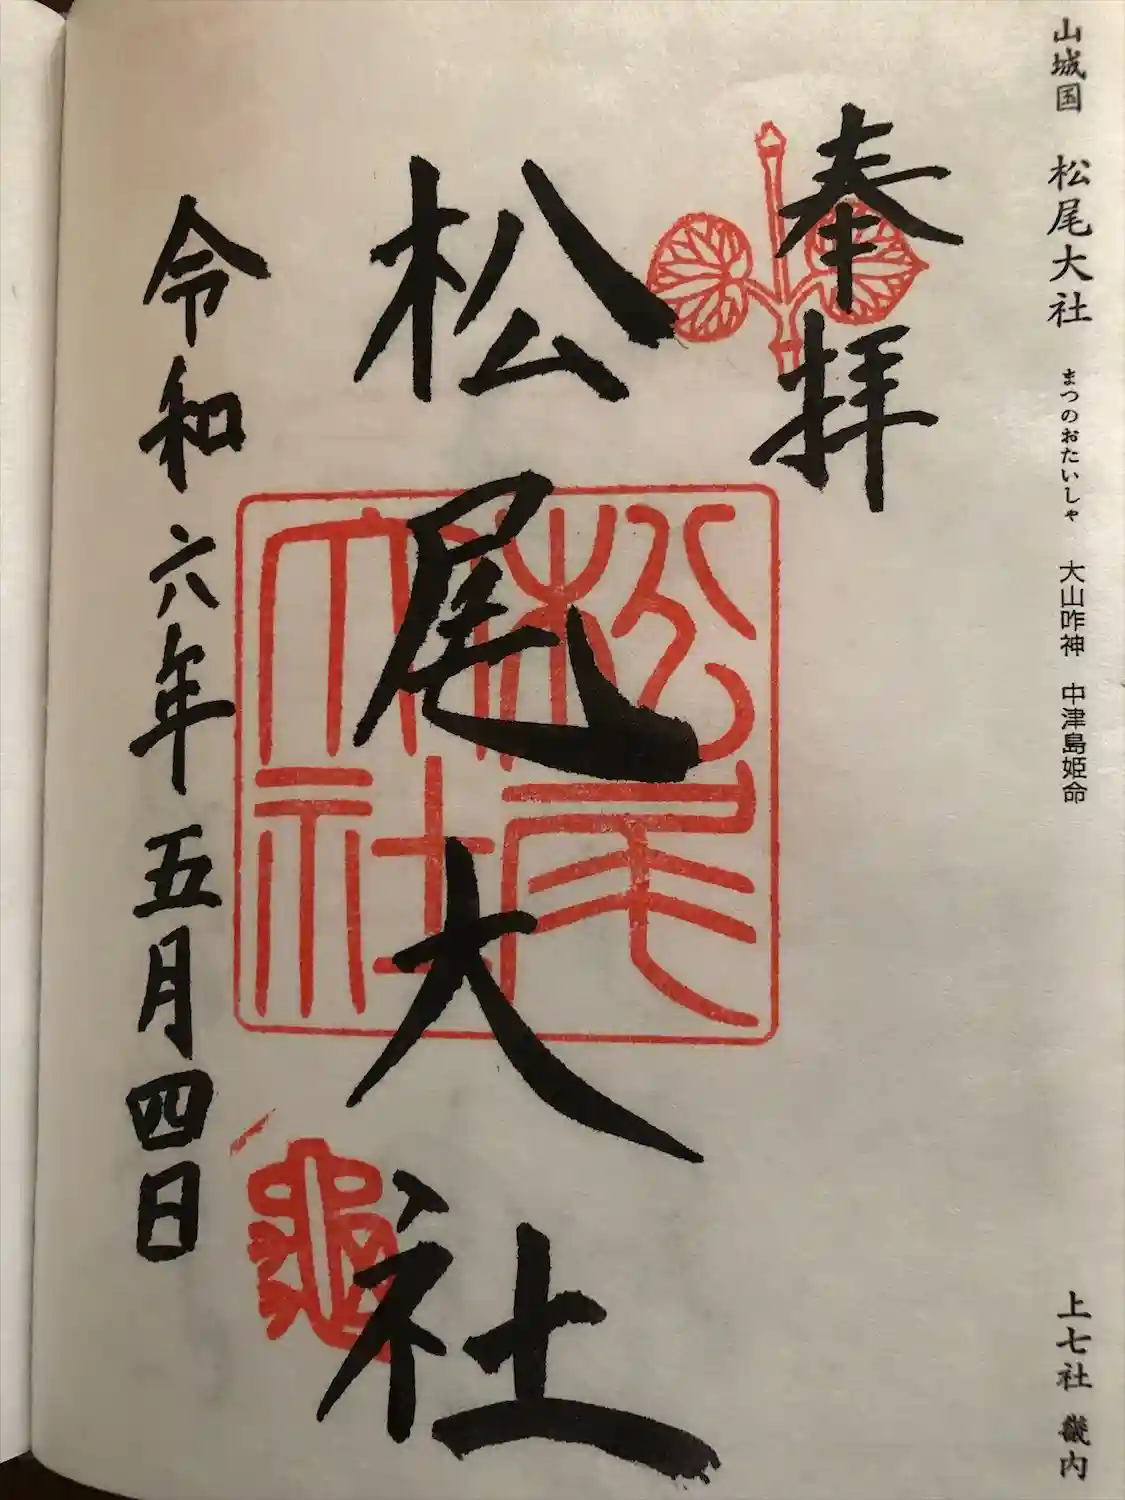 山城国 松尾大社 まつのおたいしゃ 大山咋神 中津島姫命
上七社 畿内
奉拝
松尾大社
松尾大社
龜
令和六年五月四日